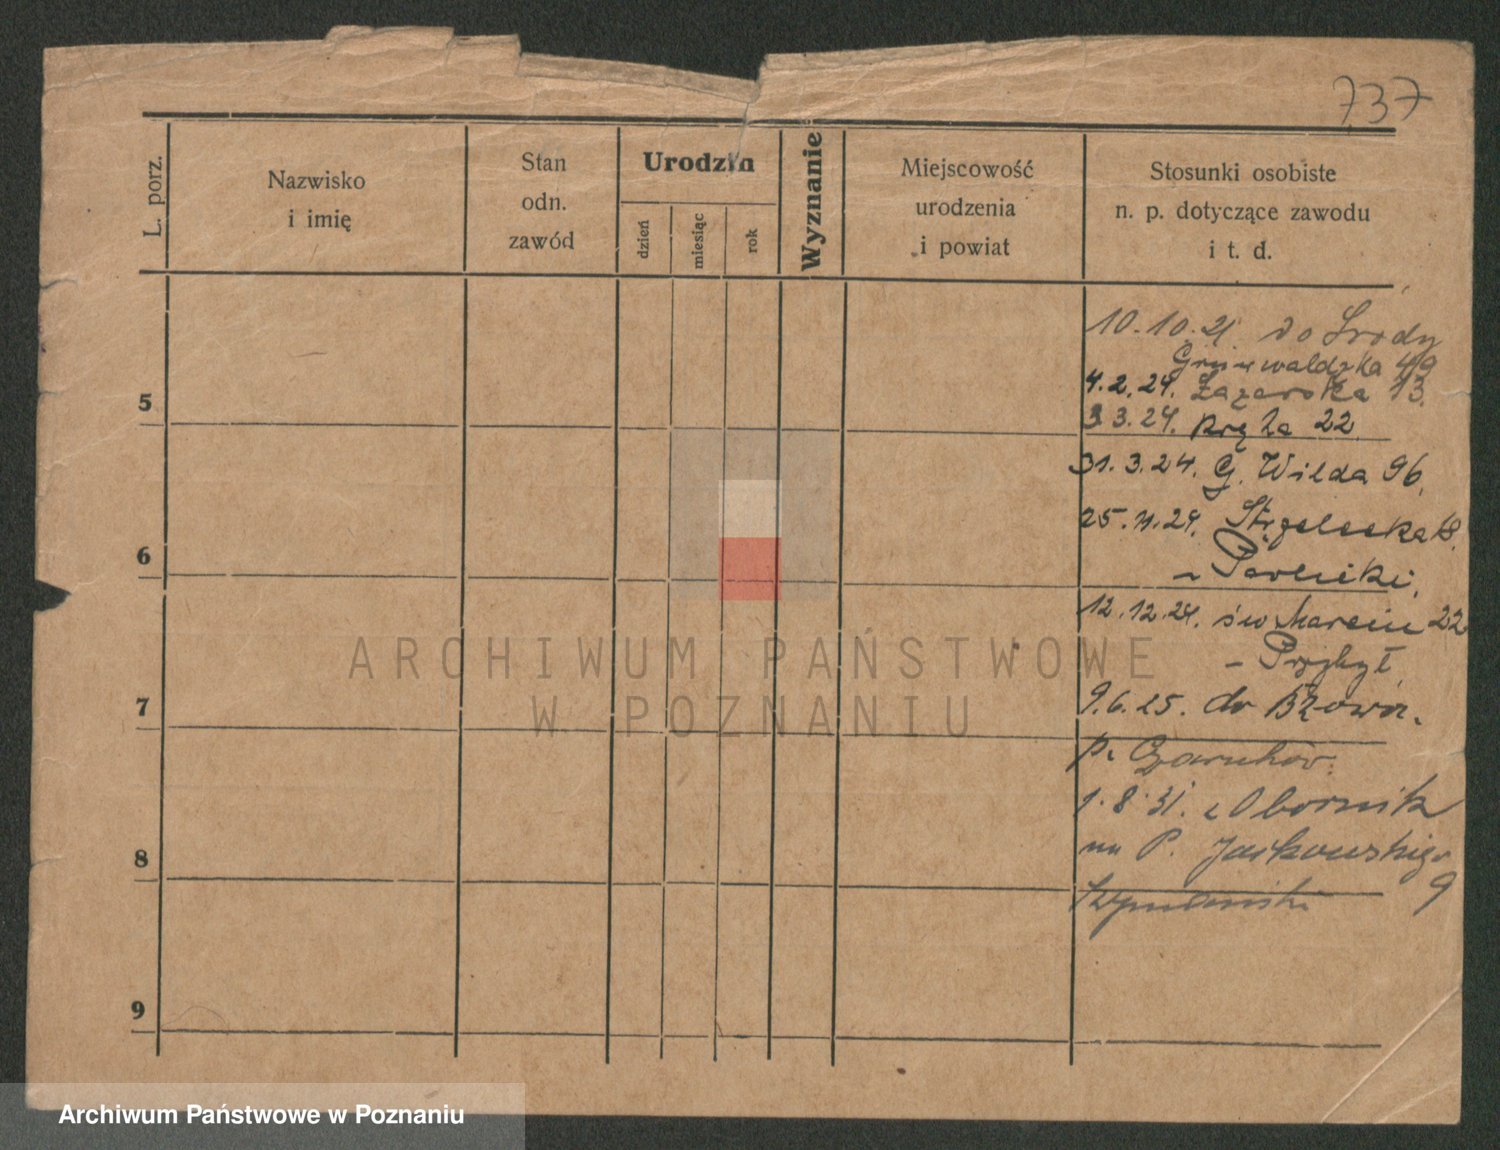 737
L. porz.
Nazwisko
i imię
Stan
odn.
zawód
Urodzin
dzień
miesiąc
rok
Wyznanie
Miejscowość
urodzenia
i powiat
Stosunki osobiste
n. p. dotyczące zawodu
i t. d.
10.10.21. do Środy
Grunwaldzka 49
4.2.24. Łazarska 13.
5
3.3.24. 22
31.3.24. G. Wilda 96.
25.11.24. Strzelecka
6
- Pawlicki,
12.12.24. św Marcin 22
- Przybył,
7
9.6.25. do
p. Czarnków.
1.8.31. z Obornik
8
na P. Jackowskiego
Szymański 9
9
ARCHIWUM PAŃSTWOWE
W POZNANIU
Archiwum Państwowe w Poznaniu